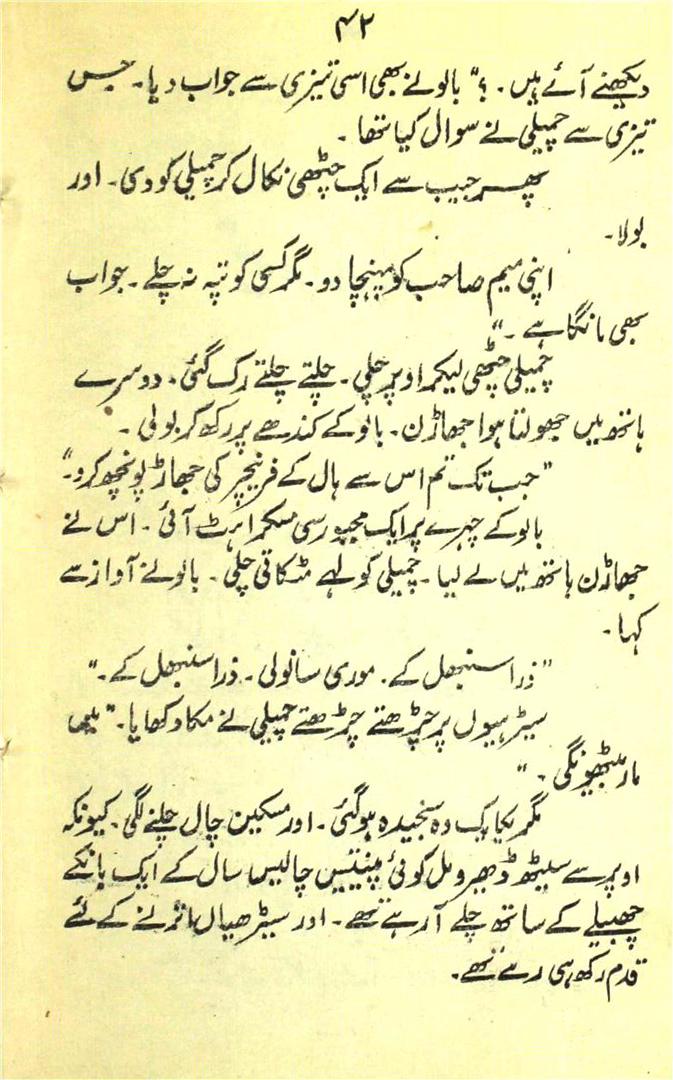 ۴۲
دیکھنے آئے ہیں۔ ؟" بالو نے بھی اسی تیزی سے جواب دیا۔ جس
تیزی سے چمیلی نے سوال کیا تھا۔
پھر جیب سے ایک چٹھی نکال کر چمیلی کو دی۔ اور
بولا۔
اپنی میم صاحب کو پہنچا دو۔ مگر کسی کو پتہ نہ چلے۔ جواب
بھی مانگا ہے۔"
چمیلی چٹھی لیکر اوپر چلی۔ چلتے چلتے رک گئی۔ دوسرے
ہاتھ میں جھولتا ہوا جھاڑن۔ بالو کے کندھے پر رکھ کر بولی۔
"جب تک تم اس سے ہال کے فرنیچر کی جھاڑ پونچھ کرو۔"
بالو کے چہرے پر ایک مجبور سی مسکراہٹ آئی۔ اس نے
جھاڑن ہاتھ میں لے لیا۔ چمیلی کولہے مٹکاتی چلی۔ بالو نے آواز سے
کہا۔
"ذرا سنبھل کے۔ موری سانولی۔ ذرا سنبھل کے۔"
سیڑھیوں پر چڑھتے چڑھتے چمیلی نے مکا دکھایا۔ "میں
مار بیٹھونگی۔"
مگر یکایک وہ سنجیدہ ہو گئی۔ اور مسکین چال چلنے لگی۔ کیونکہ
اوپر سے سیٹھ ڈھیرو مل کوئی پینتیس چالیس سال کے ایک بانکے
چھبیلے کے ساتھ چلے آ رہے تھے۔ اور سیڑھیاں اترنے کے لئے
قدم رکھ ہی رہے تھے۔